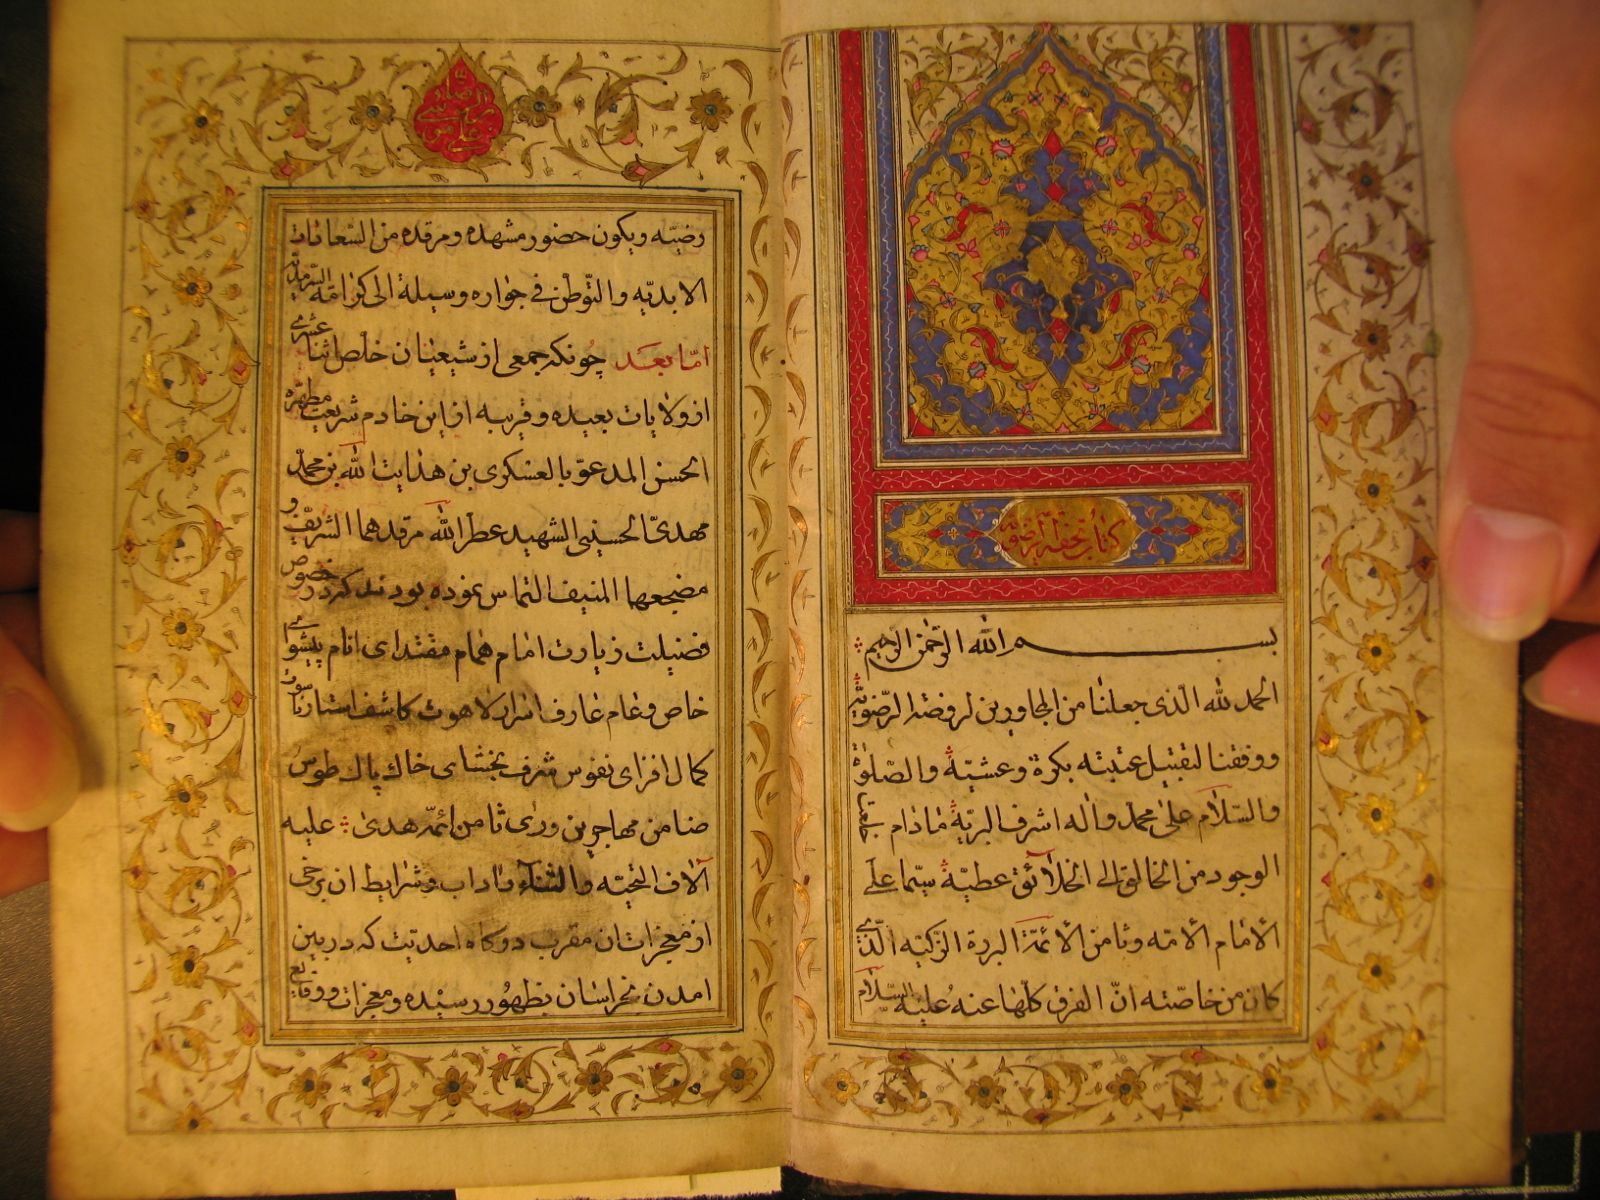 كتاب تحفة الرضويه
بسم الله الرحمن الرحيم
الحمد لله الّذى جعلنا من المجاورين لروضته الرّضويّة
ووفقنا لتقبيل عتبته بكرة وعشيّة والصّلوة
والسّلام على محمّد واله اشرف البريّة مادام
الوجود من الخالق الى الخلآئق عطيّة سيّما على
الامام الامّه وثامن الآئمّة البررة الزكيّه الّذى
كان من خاصّته انّ الفرق كلّها عنه عليه السّلام
رضيّه ويكون حضور مشهده ومرقده من السّعادات
الابديّه والتّوطّن فى جواره وسيلة الى كرامّه السّرمديّه
امّا بعد چونكه جمعى از شيعيان خلّص اثنا عشرى
از ولايات بعيده وقريبه از اين خادم شريعت مطهّره
الحسن المدعوّ بالعسكرى بن هدايت الله بن محمّد
مهدىّ الحسينى الشهيد عطر الله مرقدهما الشّريف و
مضجعهما المنيف التماس نموده بودند كه در خصوص
فضيلت زيارت امام همام مقتداى انام پيشواى
خاص وعام عارف اسرار لاهوت كاشف استار ناسوت
كمال افزاى نفوس شرف بخشاى خاك پاك طوس
ضامن مهاجرين ورى ثامن ائمّه هدى عليه
آلاف التّحيّه والثّناء واداب وشرايط ان برخى
از معجزات ان مقرب دركاه احديّت كه در بين
امدن بخراسان بظهور رسيده ومعجزات ووقايع